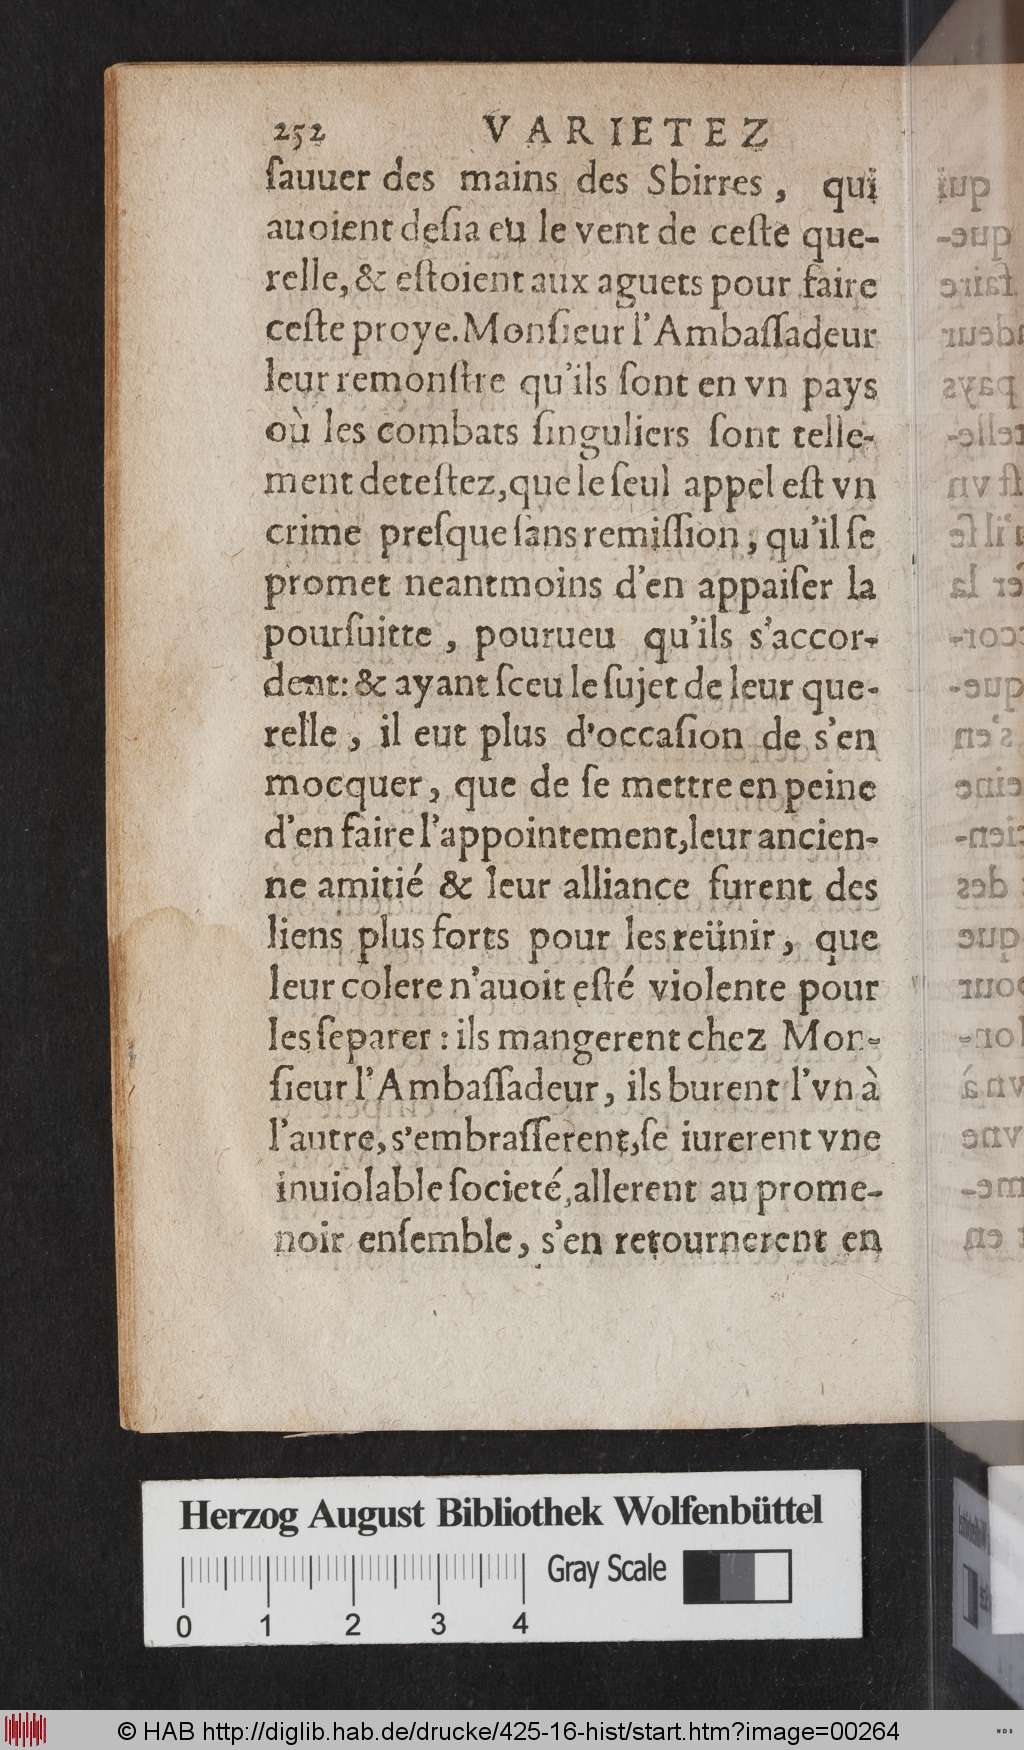 252 VARIETEZ
ſauuer des mains des Sbirres, qui
auoient deſia eu le vent de ceſte que-
relle, & eſtoient aux aguets pour faire
ceſte proye. Monſieur l'Ambaſſadeur
leur remonſtre qu'ils ſont en vn pays
où les combats ſinguliers ſont telle-
ment deteſtez, que le ſeul appel eſt vn
crime preſque ſans remiſſion, qu'il ſe
promet neantmoins d'en appaiſer la
pourſuitte, pourueu qu'ils s'accor-
dent: & ayant ſceu le ſujet de leur que-
relle, il eut plus d'occaſion de s'en
mocquer, que de ſe mettre en peine
d'en faire l'appointement, leur ancien-
ne amitié & leur alliance furent des
liens plus forts pour les reünir, que
leur colere n'auoit eſté violente pour
les ſeparer: ils mangerent chez Mon-
ſieur l'Ambaſſadeur, ils burent l'vn à
l'autre, s'embraſſerent, ſe iurerent vne
inuiolable ſocieté, allerent au prome-
noir enſemble, s'en retournerent en
Herzog August Bibliothek Wolfenbüttel
Gray Scale
0 1 2 3 4
© HAB http://diglib.hab.de/drucke/425-16-hist/start.htm?image=00264